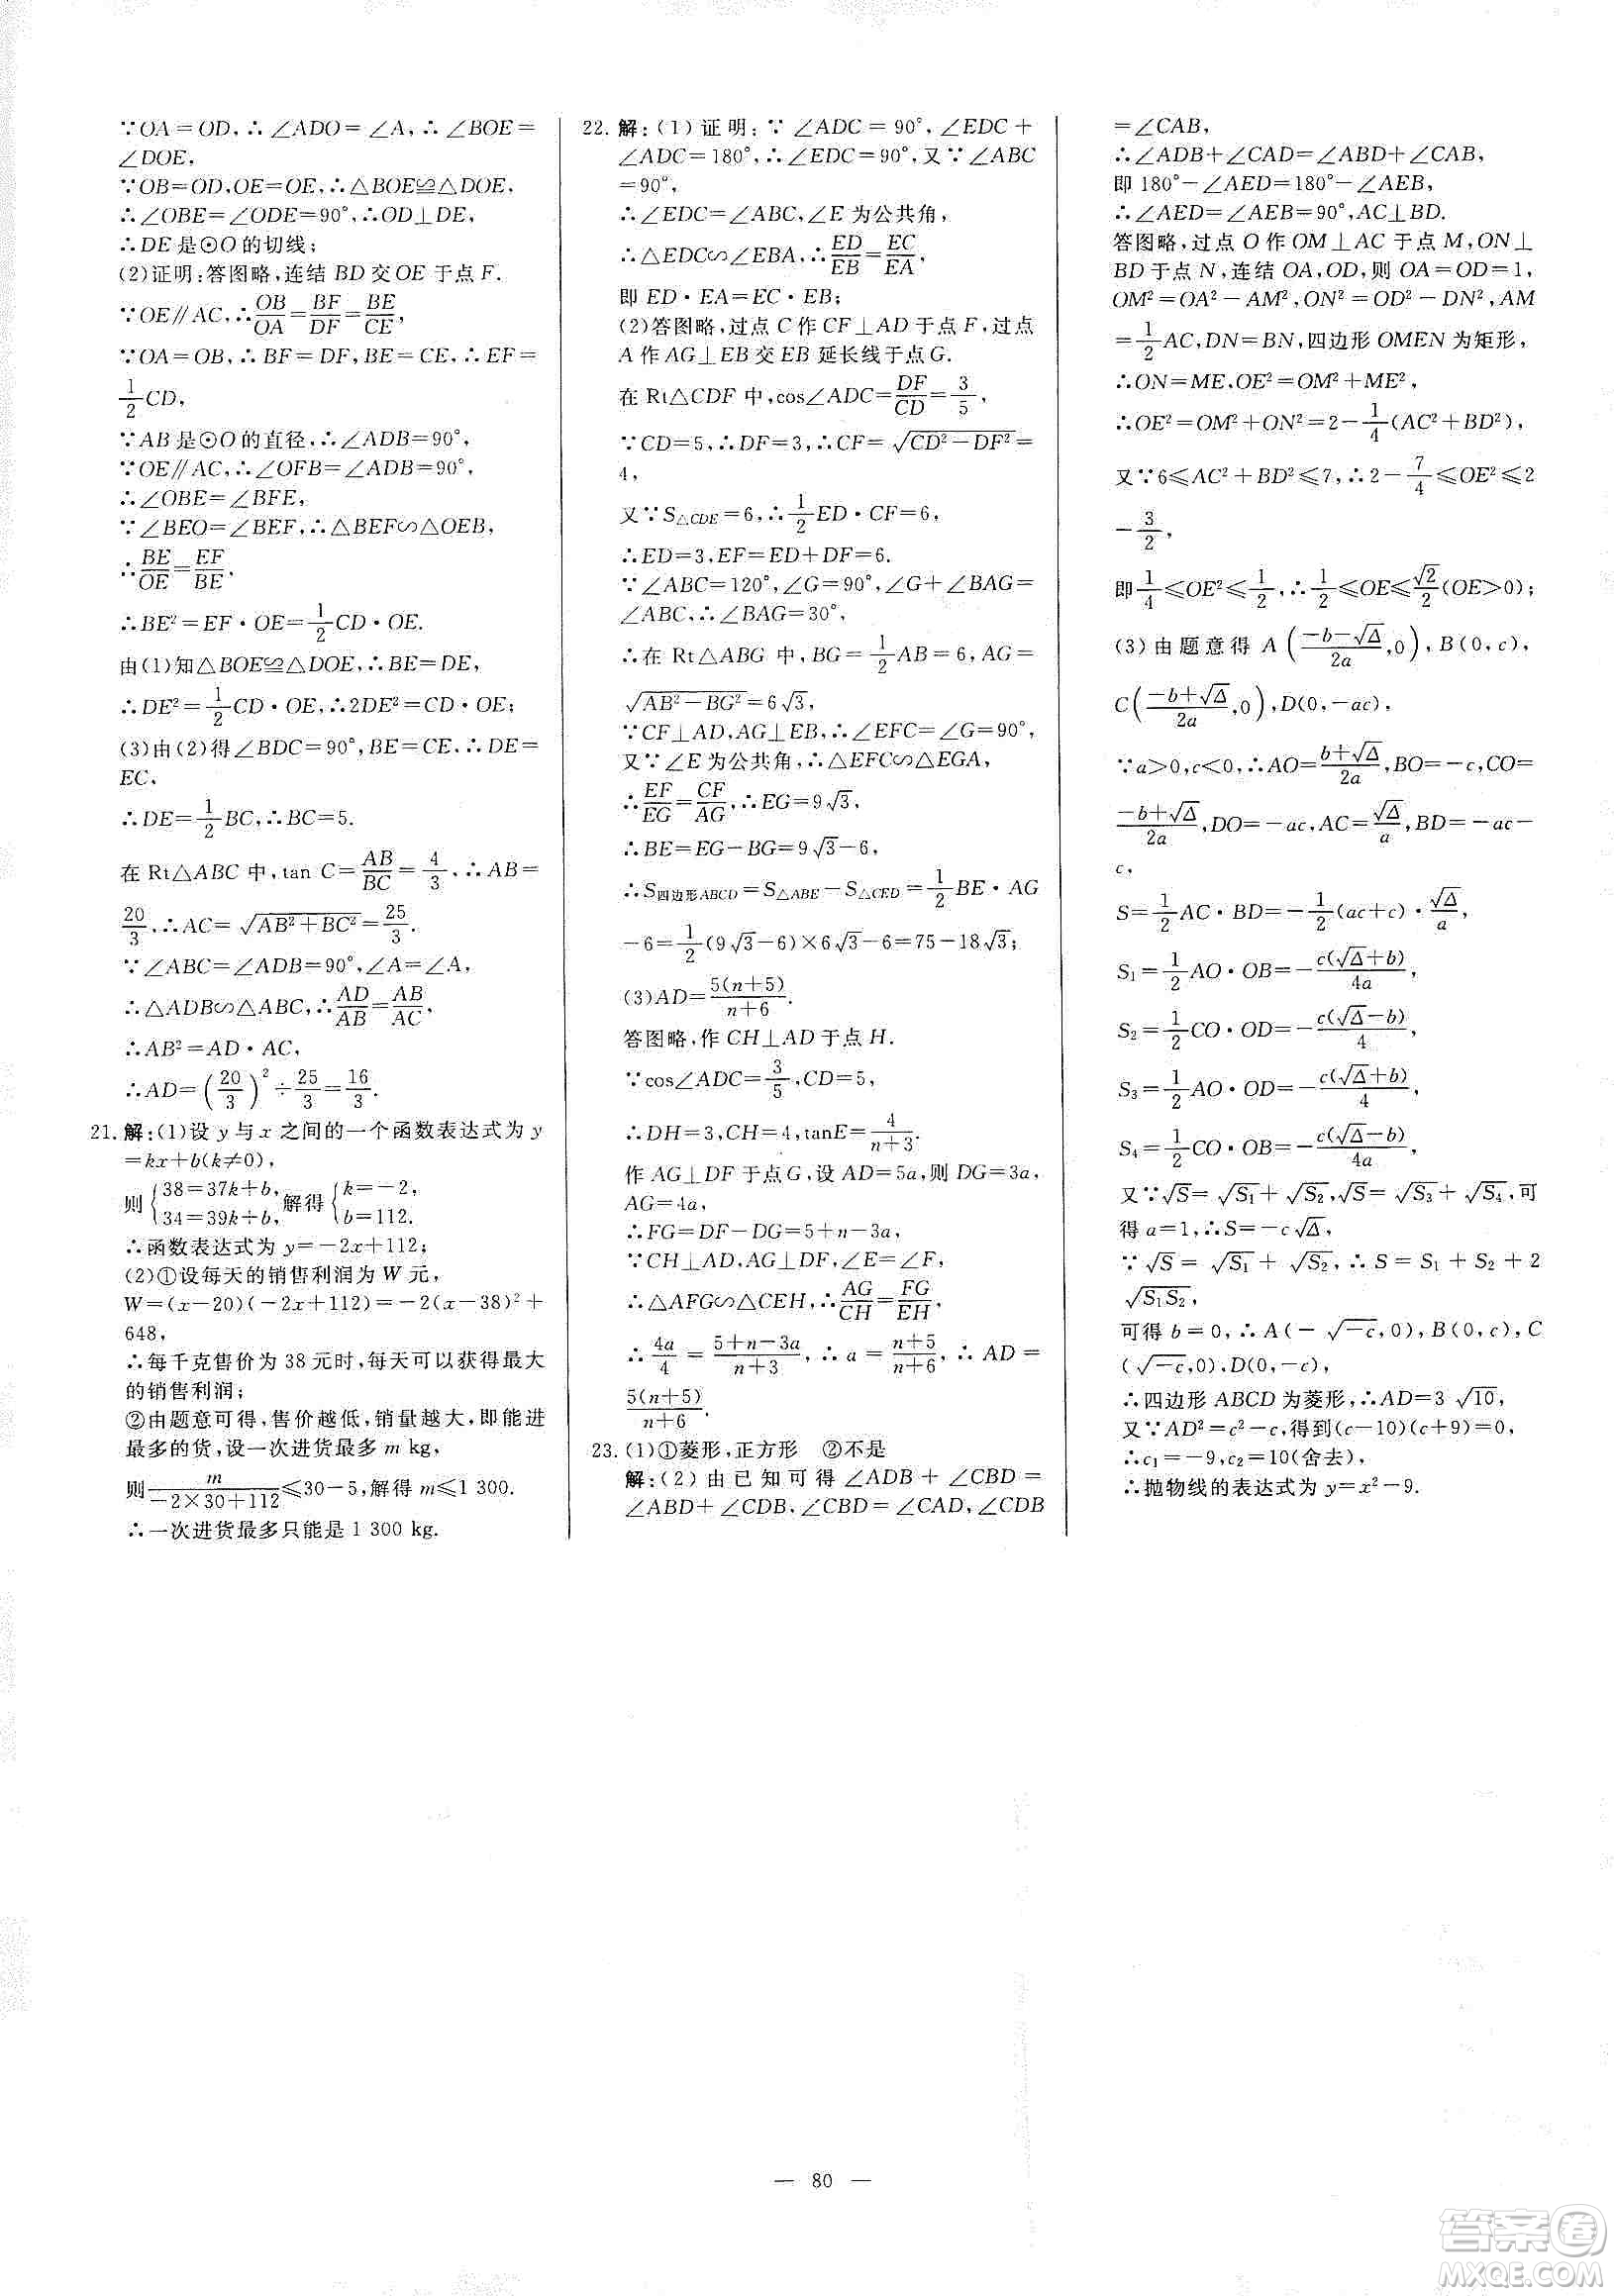 ∵OA=OD,∴∠ADO=∠A,∴∠BOE=
∠DOE,
∵OB=OD,OE=OE,∴△BOE≌△DOE,
∴∠OBE=∠ODE=90°,∴OD⊥DE,
∴DE是⊙O的切线;
(2)证明:答图略,连结BD交OE于点F.
∵OE∥AC,∴OB/OA=BF/DF=BE/CE,
∵OA=OB,∴BF=DF,BE=CE,∴EF=
1/2CD,
∵AB是⊙O的直径,∴∠ADB=90°,
∵OE∥AC,∴∠OFB=∠ADB=90°,
∴∠OBE=∠BFE,
∵∠BEO=∠BEF,∴△BEF∽△OEB,
∴BE/OE=EF/BE,
∴BE²=EF·OE=1/2CD·OE.
由(1)知△BOE≌△DOE,∴BE=DE,
∴DE²=1/2CD·OE,∴2DE²=CD·OE;
(3)由(2)得∠BDC=90°,BE=CE,∴DE=
EC,
∴DE=1/2BC,∴BC=5.
在Rt△ABC中,tan C=AB/BC=4/3,∴AB=
20/3,∴AC=√(AB²+BC²)=25/3.
∵∠ABC=∠ADB=90°,∠A=∠A,
∴△ADB∽△ABC,∴AD/AB=AB/AC,
∴AB²=AD·AC,
∴AD=(20/3)²÷25/3=16/3.
21.解:(1)设y与x之间的一个函数表达式为y
=kx+b(k≠0),
则{38=37k+b, 34=39k+b,解得{k=-2, b=112.
∴函数表达式为y=-2x+112;
(2)①设每天的销售利润为W元,
W=(x-20)(-2x+112)=-2(x-38)²+
648,
∴每千克售价为38元时,每天可以获得最大
的销售利润;
②由题意可得,售价越低,销量越大,即能进
最多的货,设一次进货最多m kg,
则m/(-2×30+112)≤30-5,解得m≤1 300.
∴一次进货最多只能是1 300 kg.
22.解:(1)证明:∵∠ADC=90°,∠EDC+
∠ADC=180°,∴∠EDC=90°,又∵∠ABC
=90°,
∴∠EDC=∠ABC,∠E为公共角,
∴△EDC∽∠EBA,∴ED/EB=EC/EA,
即ED·EA=EC·EB;
(2)答图略,过点C作CF⊥AD于点F,过点
A作AG⊥EB交EB延长线于点G.
在Rt△CDF中,cos∠ADC=DF/CD=3/5,
∵CD=5,∴DF=3,∴CF=√(CD²-DF²)=
4,
又∵S△CDE=6,∴1/2ED·CF=6,
∴ED=3,EF=ED+DF=6.
∵∠ABC=120°,∠G=90°,∠G+∠BAG=
∠ABC,∴∠BAG=30°,
∴在Rt△ABG中,BG=1/2AB=6,AG=
√(AB²-BG²)=6√3,
∵CF⊥AD,AG⊥EB,∴∠EFC=∠G=90°,
又∵∠E为公共角,∴△EFC∽△EGA,
∴EF/EG=CF/AG,∴EG=9√3,
∴BE=EG-BG=9√3-6,
∴S四边形ABCD=S△ABE-S△CED=1/2BE·AG
-6=1/2(9√3-6)×6√3-6=75-18√3;
(3)AD=5(n+5)/(n+6).
答图略,作CH⊥AD于点H.
∵cos∠ADC=3/5,CD=5,
∴DH=3,CH=4,tanE=4/(n+3).
作AG⊥DF于点G,设AD=5a,则DG=3a,
AG=4a,
∴FG=DF-DG=5+n-3a,
∵CH⊥AD,AG⊥DF,∠E=∠F,
∴△AFG∽△CEH,∴AG/CH=FG/EH,
∴4a/4=(5+n-3a)/(n+3),∴a=(n+5)/(n+6),∴AD=
5(n+5)/(n+6).
23.(1)①菱形,正方形 ②不是
解:(2)由已知可得∠ADB+∠CBD=
∠ABD+∠CDB,∠CBD=∠CAD,∠CDB
=∠CAB,
∴∠ADB+∠CAD=∠ABD+∠CAB,
即180°-∠AED=180°-∠AEB,
∴∠AED=∠AEB=90°,AC⊥BD.
答图略,过点O作OM⊥AC于点M,ON⊥
BD于点N,连结OA,OD,则OA=OD=1,
OM²=OA²-AM²,ON²=OD²-DN²,AM
=1/2AC,DN=BN,四边形OMEN为矩形,
∴ON=ME,OE²=OM²+ME²,
∴OE²=OM²+ON²=2-1/4(AC²+BD²),
又∵6≤AC²+BD²≤7,∴2-7/4≤OE²≤2
-3/2,
即1/4≤OE²≤1/2,∴1/2≤OE≤√2/2(OE>0);
(3)由题意得A((-b-√Δ)/2a,0),B(0,c),
C((-b+√Δ)/2a,0),D(0,-ac),
∵a>0,c<0,∴AO=(b+√Δ)/2a,BO=-c,CO=
(-b+√Δ)/2a,DO=-ac,AC=√Δ/a,BD=-ac-
c,
S=1/2AC·BD=-1/2(ac+c)·√Δ/a,
S₁=1/2AO·OB=-c(√Δ+b)/4a,
S₂=1/2CO·OD=-c(√Δ-b)/4,
S₃=1/2AO·OD=-c(√Δ+b)/4,
S₄=1/2CO·OB=-c(√Δ-b)/4a,
又∵√S=√S₁+√S₂,√S=√S₃+√S₄,可
得a=1,∴S=-c√Δ,
∵√S=√S₁+√S₂,∴S=S₁+S₂+2
√(S₁S₂),
可得b=0,∴A(-√(-c),0),B(0,c),C
(√(-c),0),D(0,-c),
∴四边形ABCD为菱形,∴AD=3√10,
又∵AD²=c²-c,得到(c-10)(c+9)=0,
∴c₁=-9,c₂=10(舍去),
∴抛物线的表达式为y=x²-9.
— 80 —
答案圈
MXQE.COM